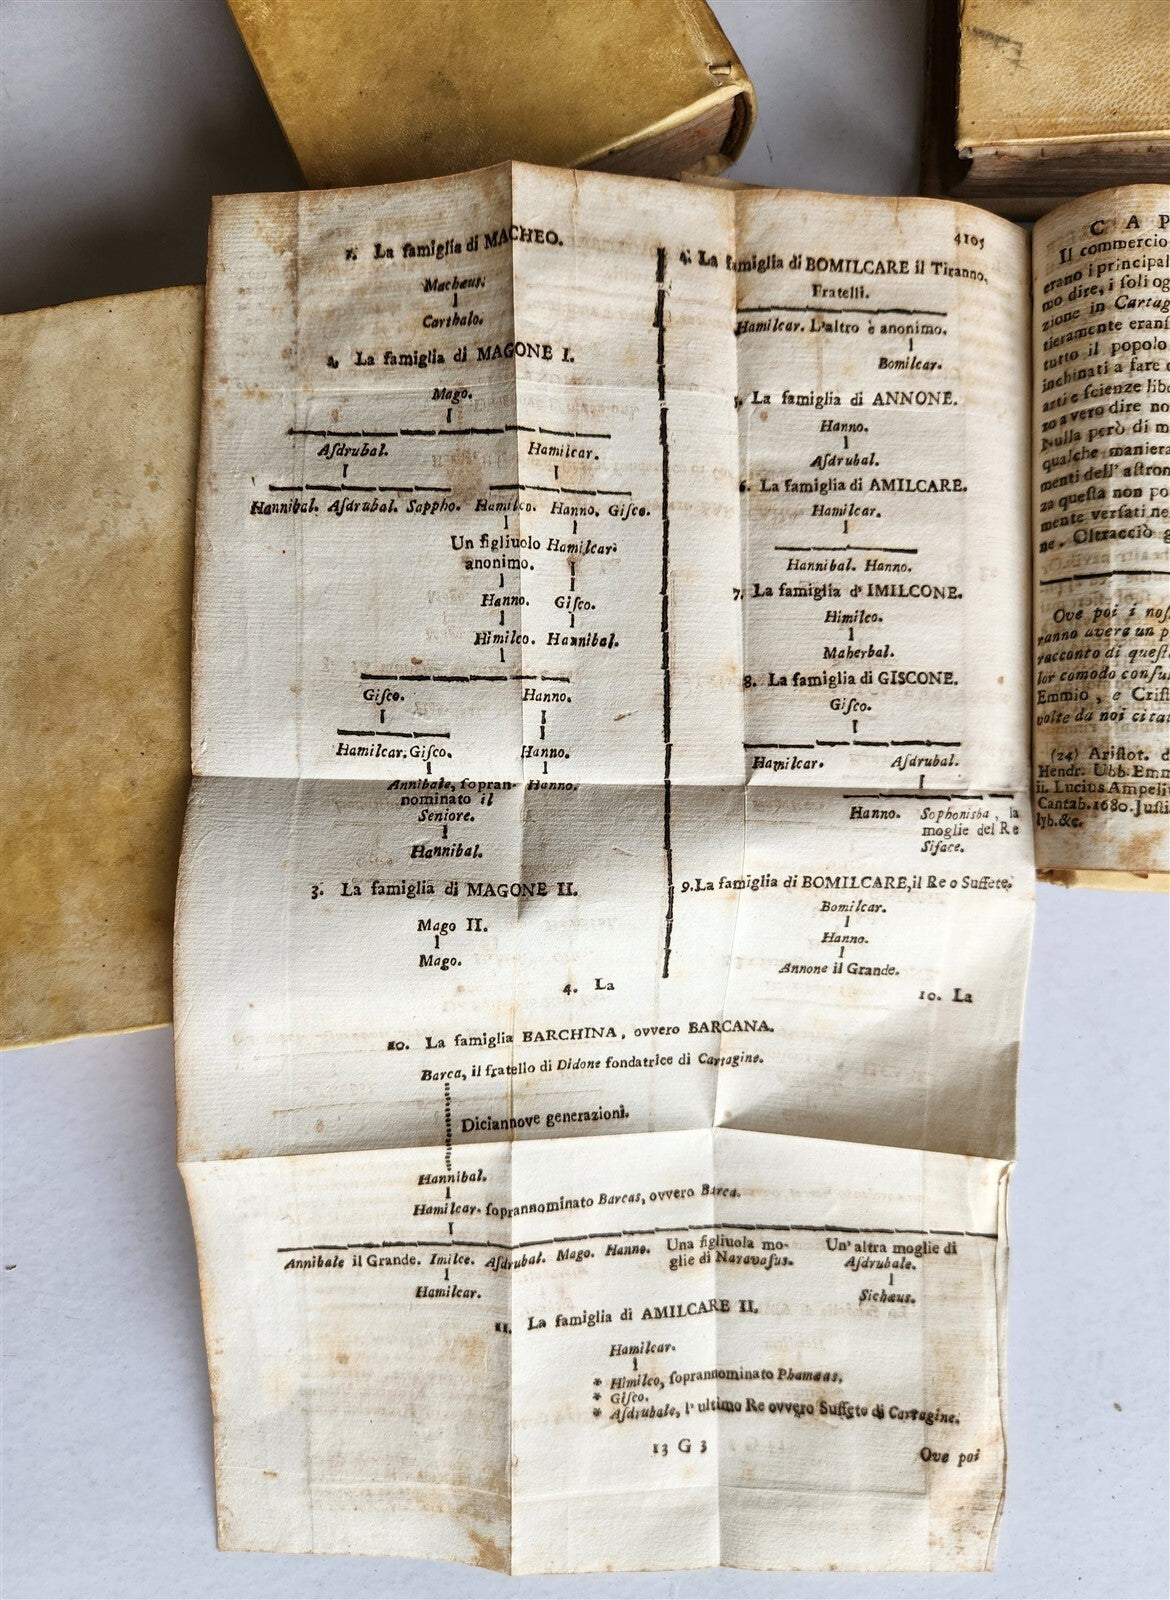 1. La famiglia di MACHEO.
Machæus.
Carthalo.
2. La famiglia di MAGONE I.
Mago.
Aſdrubal. Hamilcar.
Hannibal. Aſdrubal. Sappho. Hamilco. Hanno. Giſco.
Un figliuolo Hamilcar.
anonimo.
Hanno. Giſco.
Himilco. Hannibal.
Giſco. Hanno.
Hamilcar. Giſco. Hanno.
Annibale, ſopran- Hanno.
nominato il
Seniore.
Hannibal.
3. La famiglia di MAGONE II.
Mago II.
Mago.
4. La
4105
4. La famiglia di BOMILCARE il Tiranno,
Fratelli.
Hamilcar. L'altro è anonimo.
Bomilcar.
5. La famiglia di ANNONE.
Hanno.
Aſdrubal.
6. La famiglia di AMILCARE.
Hamilcar.
Hannibal. Hanno.
7. La famiglia d' IMILCONE.
Himilco.
Maherbal.
8. La famiglia di GISCONE.
Giſco.
Hamilcar. Aſdrubal.
Hanno. Sophonisba, la
moglie del Re
Siface.
9. La famiglia di BOMILCARE, il Re o Suffete.
Bomilcar.
Hanno.
Annone il Grande.
10. La
10. La famiglia BARCHINA, ovvero BARCANA.
Barca, il fratello di Didone fondatrice di Cartagine.
Diciannove generazioni.
Hannibal.
Hamilcar. ſoprannominato Barcas, ovvero Barca.
Annibale il Grande. Imilce. Aſdrubal. Mago. Hanno. Una figliuola mo- Un' altra moglie di
glie di Naravaſus. Aſdrubale.
Hamilcar. Sichæus.
11. La famiglia di AMILCARE II.
Hamilcar.
* Himilco, ſoprannominato Phamæas.
* Giſco.
* Aſdrubale, l' ultimo Re ovvero Suffete di Cartagine.
13 G 3
Ove poi
C A P
Il commercio
erano i principal
mo dire, i ſoli og
zione in Cartag
tieramente eranſ
tutto il popolo
inchinati a fare
arti e ſcienze libe
zo a vero dire no
Nulla però di m
qualche maniera
menti dell' aſtron
za queſta non po
mente verſati ne
ne. Oltracciò g
Ove poi i noſ
ranno avere un p
racconto di queſt
lor comodo conſu
Emmio, e Criſt
volte da noi citat
(24) Ariſtot. d
Hendr. Ubb. Emm
ii. Lucius Ampeli
Cantab. 1680. Juſti
lyb. &c.